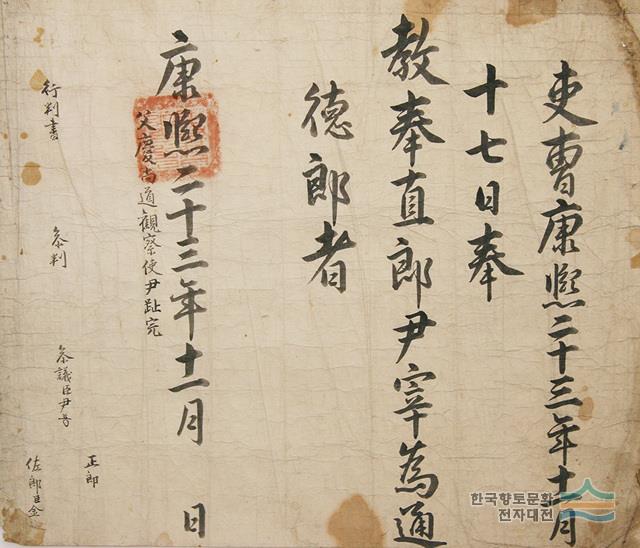 吏曹康熙二十三年十一月
十七日奉
教奉直郎尹宰為通
德郎者
康熙二十三年十一月 日
父慶尚道觀察使尹趾完
行判書
叅判
叅議臣尹
正郎
佐郎臣金
한국향토문화
전자대전